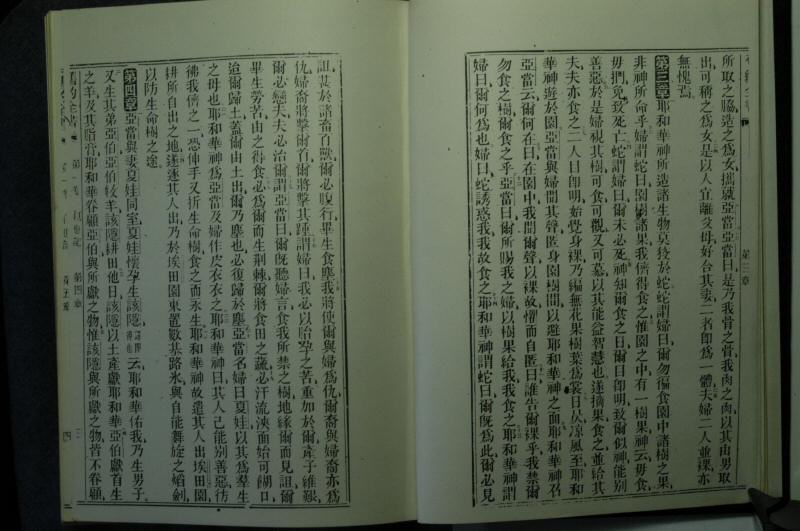 所取之脇造之爲女、携就亞當、亞當曰、是乃我骨之骨、我肉之肉、以其由男取
出、可稱之爲女、是以人宜離父母、好合其妻、二者卽爲一體、夫婦二人並裸、亦
無愧焉、
第三章 耶和華神所造諸生物、莫狡於蛇、蛇謂婦曰、爾勿徧食園中諸樹之果、
非神所命乎、婦謂蛇曰、園樹諸果、我儕得食之、惟園之中有一樹果、神云、毋食、
毋捫、免致死亡、蛇謂婦曰、爾未必死、神知爾食之日、爾目卽明、致爾似神、能別
善惡、於是婦視其樹可食、可觀、又可慕、以其能益智慧也、遂摘果食之、並給其
夫、夫亦食之、二人目卽明、始覺身裸、乃編無花果樹葉爲裳、日昃涼風至、耶和
華神遊於園、亞當與婦聞其聲、匿身園樹間、以避耶和華神之面、耶和華神召
亞當云、爾何在、曰、在園中、我聞爾聲、以裸故、懼而自匿、曰、誰告爾裸乎、我禁爾
勿食之樹、爾食之乎、亞當曰、爾所賜我之婦、以樹果給我、我食之、耶和華神謂
婦曰、爾何爲也、婦曰、蛇誘惑我、我故食之、耶和華神謂蛇曰、爾旣爲此、爾必見
詛、甚於諸畜百獸、爾必腹行、畢生食塵、我將使爾與婦爲仇、爾裔與婦裔亦爲
仇、婦裔將擊爾首、爾將擊其踵、謂婦曰、我必以胎孕之苦、重加於爾、產子維艱、
爾必戀夫、夫必治爾、謂亞當曰、爾旣聽婦言、食我所禁之樹、地緣爾而見詛、爾
畢生勞苦、由之得食、必爲爾而生荊棘、爾將食田之蔬、必汗流浹面、始可餬口、
迨爾歸土、蓋爾由土出、爾乃塵也、必復歸於塵、亞當名婦曰夏娃、以其爲羣生
之母也、耶和華神爲亞當及婦作皮衣衣之、耶和華神曰、其人已能別善惡、彷
彿我儕之一、恐伸手又折生命樹、食之而永生、耶和華神故遣其人出埃田園、
耕所自出之地、遂逐其人出、乃於埃田園東、置𠼻㗶𡀔及自能舞旋之焰劍、
以防生命樹之途、
第四章 亞當與妻夏娃同室、夏娃懷孕生該隱、云、耶和華佑我、乃生男子、
又生其弟亞伯、亞伯牧羊、該隱耕田、他日、該隱以土產獻耶和華、亞伯獻首生
之羊、及其脂膏、耶和華眷顧亞伯、與所獻之物、惟該隱與所獻之物、皆不眷顧、
第三章
第四章